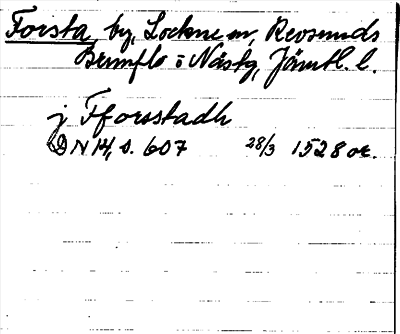 Forsta, by, Lockne sn, Revsunds
Brunflo o Näs tg, Jämtl. l.
j Fforsstadh
DN 14, s. 607 28/3 1528 or.